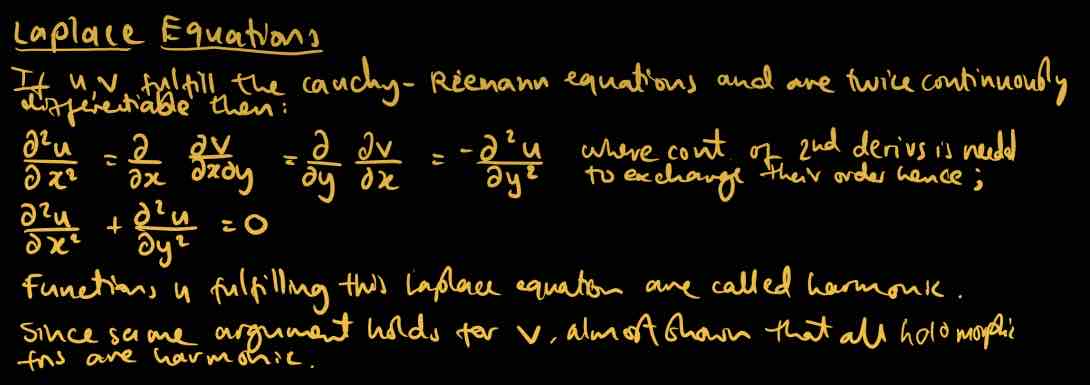 Laplace Equations
If u, v fulfill the cauchy-Riemann equations and are twice continuously
differentiable then:
∂²u/∂x² = ∂/∂x ∂v/∂x∂y = ∂/∂y ∂v/∂x = -∂²u/∂y² where cont. of 2nd derivs is needd
to exchange their order hence;
∂²u/∂x² + ∂²u/∂y² = 0
Functions u fulfilling this Laplace equation are called harmonic.
Since same argument holds for v, almost shown that all holomorphic
fns are harmonic.